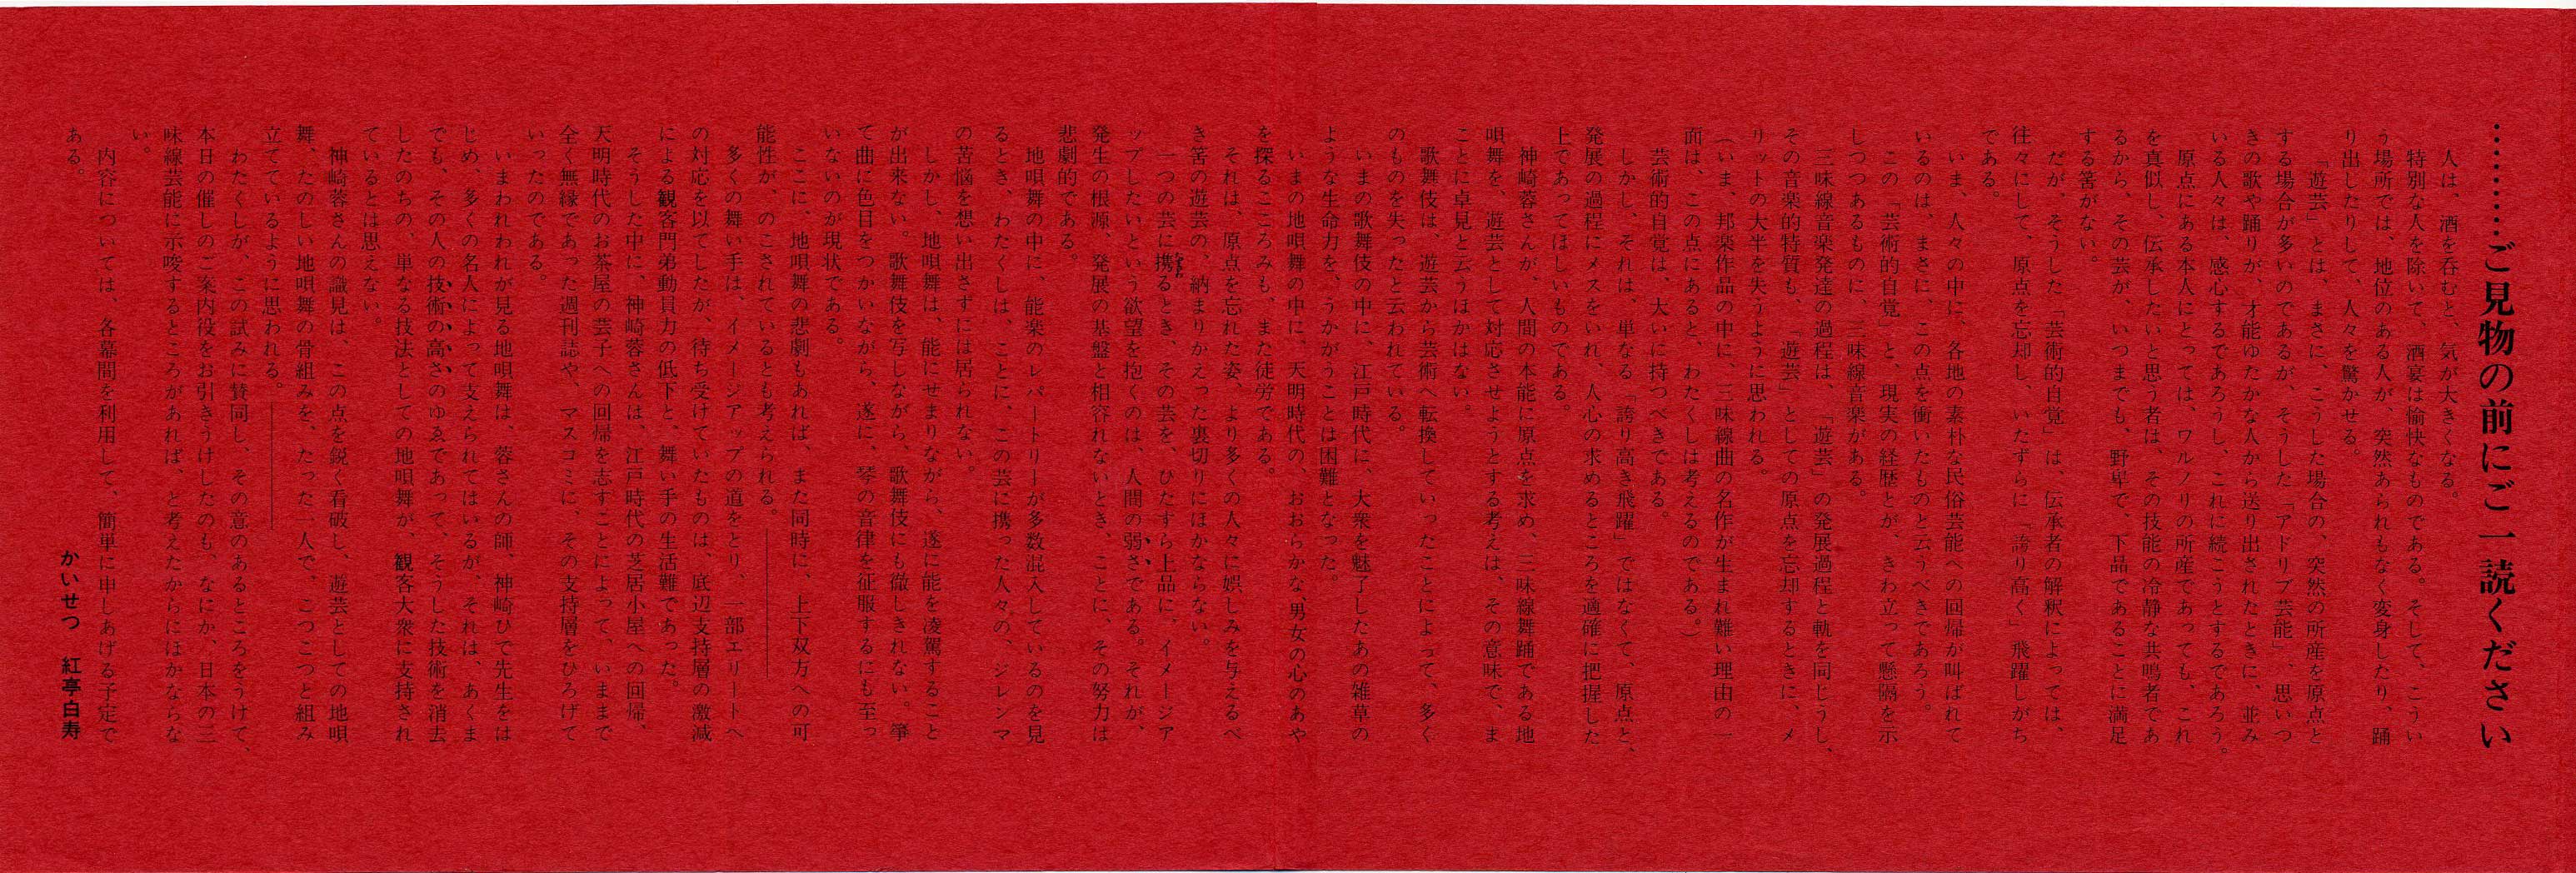 …………ご見物の前にご一読ください
人は、酒を呑むと、気が大きくなる。
特別な人を除いて、酒宴は愉快なものである。そして、こうい
う場所では、地位のある人が、突然あられもなく変身したり、踊
り出したりして、人々を驚かせる。
「遊芸」とは、まさに、こうした場合の、突然の所産を原点と
する場合が多いのであるが、そうした「アドリブ芸能」、思いつ
きの歌や踊りが、才能ゆたかな人から送り出されたときに、並み
いる人々は、感心するであろうし、これに続こうとするであろう。
原点にある本人にとっては、ワルノリの所産であっても、これ
を真似し、伝承したいと思う者は、その技能の冷静な共鳴者であ
るから、その芸が、いつまでも、野卑で、下品であることに満足
する筈がない。
だが、そうした「芸術的自覚」は、伝承者の解釈によっては、
往々にして、原点を忘却し、いたずらに「誇り高く」飛躍しがち
である。
いま、人々の中に、各地の素朴な民俗芸能への回帰が叫ばれて
いるのは、まさに、この点を衝いたものと云うべきであろう。
この「芸術的自覚」と、現実の経歴とが、きわ立って懸隔を示
しつつあるものに、三味線音楽がある。
三味線音楽発達の過程は、「遊芸」の発展過程と軌を同じうし、
その音楽的特質も、「遊芸」としての原点を忘却するときに、メ
リットの大半を失うように思われる。
（いま、邦楽作品の中に、三味線曲の名作が生まれ難い理由の一
面は、この点にあると、わたくしは考えるのである。）
芸術的自覚は、大いに持つべきである。
しかし、それは、単なる「誇り高き飛躍」ではなくて、原点と、
発展の過程にメスをいれ、人心の求めるところを適確に把握した
上であってほしいものである。
神崎蓉さんが、人間の本能に原点を求め、三味線舞踊である地
唄舞を、遊芸として対応させようとする考えは、その意味で、ま
ことに卓見と云うほかはない。
歌舞伎は、遊芸から芸術へ転換していったことによって、多く
のものを失ったと云われている。
いまの歌舞伎の中に、江戸時代に、大衆を魅了したあの雑草の
ような生命力を、うかがうことは困難となった。
いまの地唄舞の中に、天明時代の、おおらかな、男女の心のあや
を探るこころみも、また徒労である。
それは、原点を忘れた姿、より多くの人々に娯しみを与えるべ
き筈の遊芸の、納まりかえった裏切りにほかならない。
一つの芸に携るとき、その芸を、ひたすら上品に、イメージア
ップしたいという欲望を抱くのは、人間の弱さである。それが、
発生の根源、発展の基盤と相容れないとき、ことに、その努力は
悲劇的である。
地唄舞の中に、能楽のレパートリーが多数混入しているのを見
るとき、わたくしは、ことに、この芸に携った人々の、ジレンマ
の苦悩を想い出さずには居られない。
しかし、地唄舞は、能にせまりながら、遂に能を凌駕すること
が出来ない。歌舞伎を写しながら、歌舞伎にも徹しきれない。箏
て曲に色目をつかいながら、遂に、琴の音律を征服するにも至っ
いないのが現状である。
ここに、地唄舞の悲劇もあれば、また同時に、上下双方への可
能性が、のこされているとも考えられる。————
多くの舞い手は、イメージアップの道をとり、一部エリートへ
の対応を以てしたが、待ち受けていたものは、底辺支持層の激減
による観客門弟動員力の低下と、舞い手の生活難であった。
そうした中に、神崎蓉さんは、江戸時代の芝居小屋への回帰、
天明時代のお茶屋の芸子への回帰を志すことによって、いままで
全く無縁であった週刊誌や、マスコミに、その支持層をひろげて
いったのである。
いまわれわれが見る地唄舞は、蓉さんの師、神崎ひで先生をは
じめ、多くの名人によって支えられてはいるが、それは、あくま
でも、その人の技術の高さのゆゑであって、そうした技術を消去
したのちの、単なる技法としての地唄舞が、観客大衆に支持され
ているとは思えない。
神崎蓉さんの識見は、この点を鋭く看破し、遊芸としての地唄
舞、たのしい地唄舞の骨組みを、たった一人で、こつこつと組み
立てているように思われる。————
わたくしが、この試みに賛同し、その意のあるところをうけて、
本日の催しのご案内役をお引きうけしたのも、なにか、日本の三
味線芸能に示唆するところがあれば、と考えたからにほかならな
い。
内容については、各幕間を利用して、簡単に申しあげる予定で
ある。
かいせつ　紅亭白寿